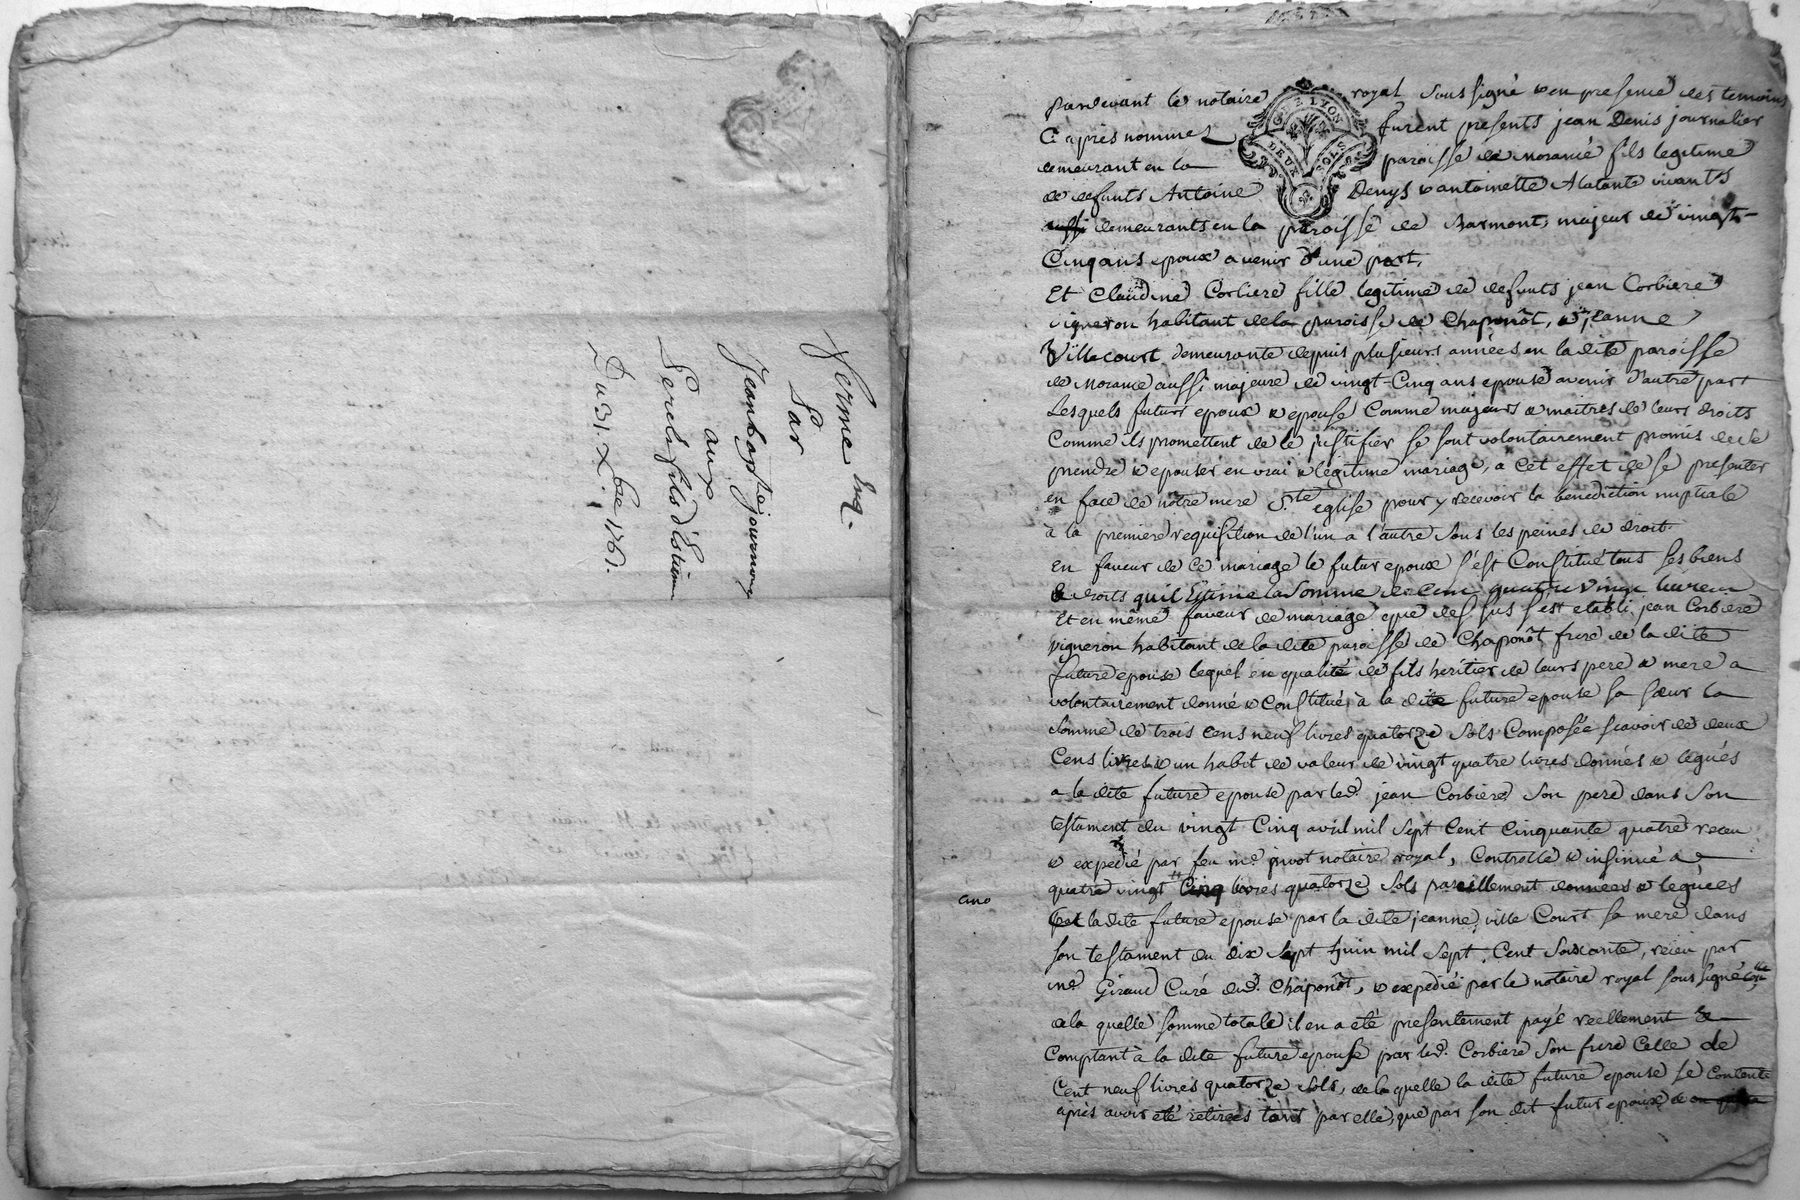 Verme Inq.
Par
Jean baptiste journoux
aux
Perelis fils d'Estienne
Du 31. Xbre 1761.
GNE LYON
DEUX SOLS
pardevant le notaire royal soussigné & en presence des temoins
Ci apres nommes furent presents jean Denis journalier
demeurant en la paroisse de morancé fils legitime
de defunts Antoine Denys & antoinette Alatante vivants
demeurants en la paroisse de Marmont, majeur de vingt-
Cinq ans epoux a venir d'une part,
Et Claudine Corbiere fille legitime de defunts jean Corbiere
vigneron habitant de la paroisse de Chaponôt, & jeanne
Villecourt demeurante depuis plusieurs années en la dite paroisse
de Morancé aussi majeure de vingt-Cinq ans epouse avenir d'autre part
Lesquels futurs epoux & epouse Comme majeurs & maitres de leurs droits
Comme ils promettent de le justifier se sont volontairement promis de se
prendre & epouser en vrai & légitime mariage, a Cet effet de se presenter
en face de nôtre mere S.te eglise pour y recevoir la benediction nuptiale
à la premiere requisition de l'un a l'autre sous les peines de droit
En faveur de Ce mariage le futur epoux s'est Constitué tous ses biens
& droits qu'il Estime la Somme de Cent quatre vingt livres
Et en même faveur de mariage que dessus s'est etabli jean Corbiere
vigneron habitant de la dite paroisse de Chaponôt frere de la dite
future epouse lequel en qualité de fils heritier de leurs pere & mere a
volontairement donné & Constitué à la dite future epouse sa sœur la
somme de trois cens neuf livres quatorze sols Composée scavoir de deux
Cens livres & un habit de valeur de vingt quatre livres donnés & legués
a la dite future epouse par led. jean Corbiere son pere dans son
testament du vingt Cinq avril mil sept Cent Cinquante quatre receu
& expedié par feu me. pivot notaire royal, Controllé & insinué &
quatre vingt Cinq livres quatorze sols pareillement données & leguées
la dite future epouse par la dite jeanne ville Court sa mere dans
son testament du dix sept juin mil sept Cent soixante, receu par
me. Giraud Curé dud. Chaponôt, & expedié par le notaire royal soussigné
de la quelle somme totale il en a eté presentement payé reellement &
Comptant à la dite future epouse par led. Corbiere son frere Celle de
Cent neuf livres quatorze sols, de la quelle la dite future epouse se Contente
après avoir eté retirées tant par elle, que par son dit futur epoux &